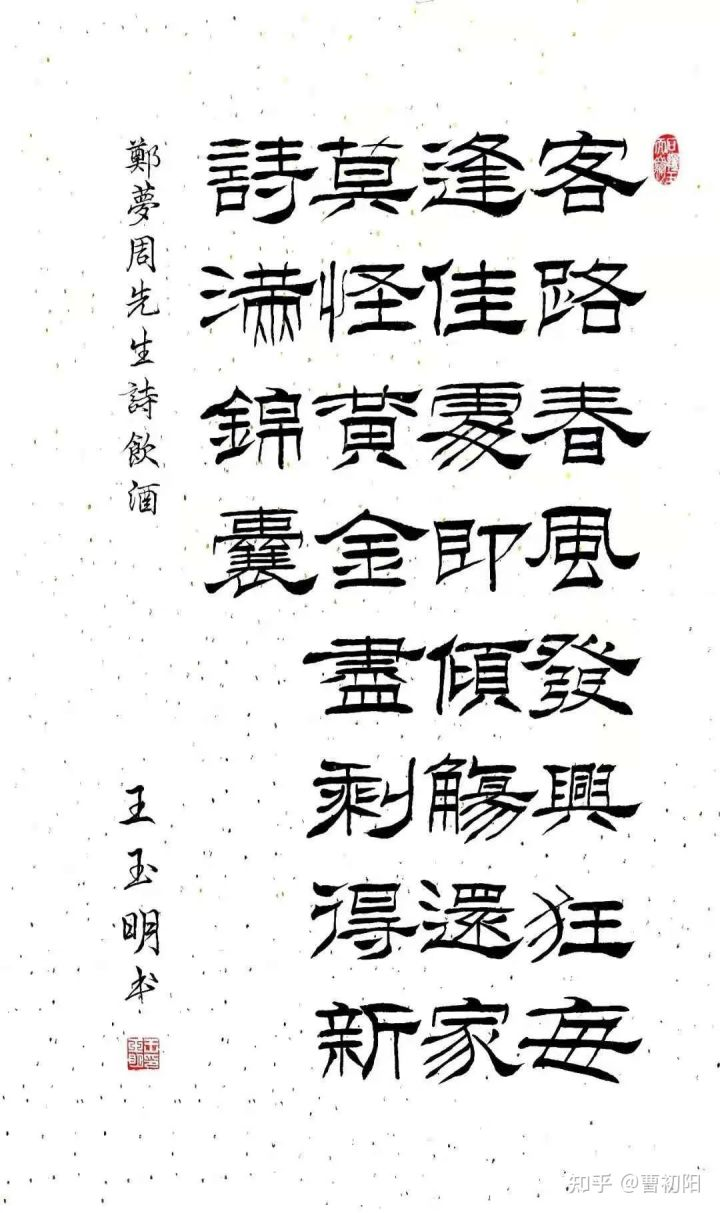 客路春風發興狂每
逢佳處即傾觴還家
莫怪黃金盡剩得新
詩滿錦囊
鄭夢周先生詩飲酒
王玉明书
知乎 @曹初阳